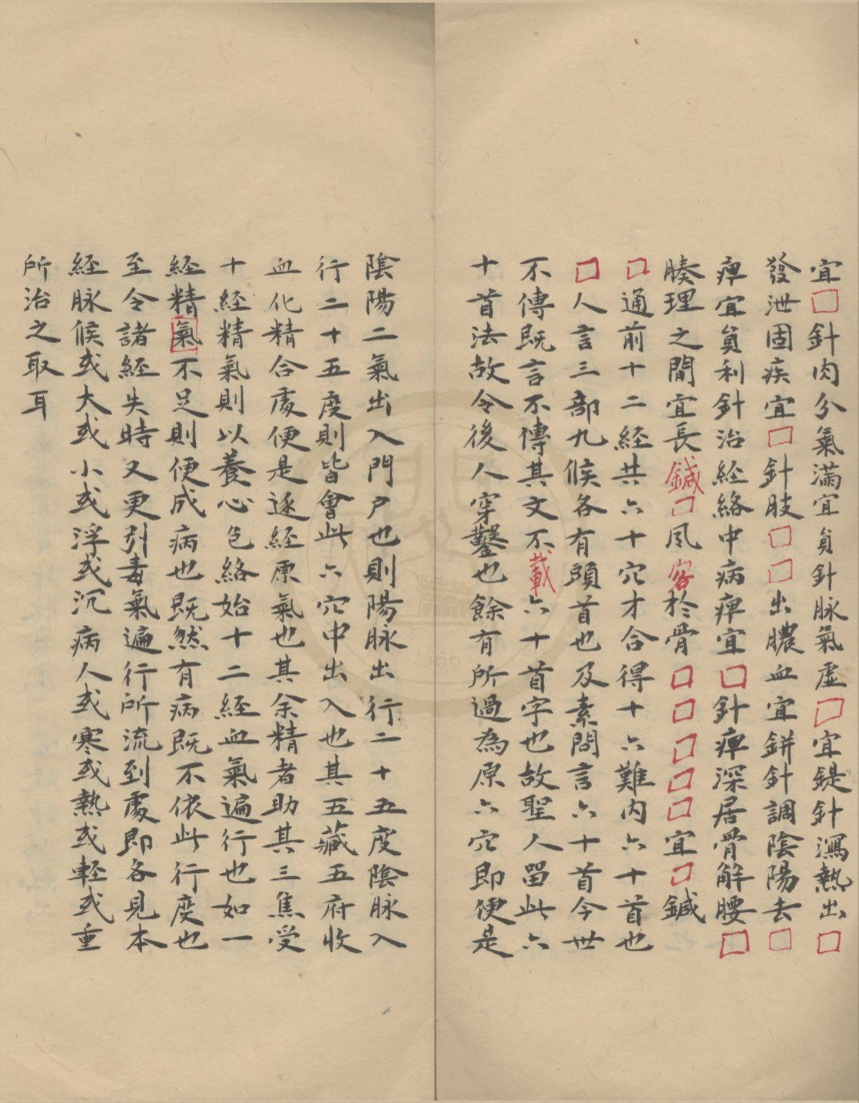 宜□針肉分氣滿宜負針脉氣虛□宜鍉針瀉熱出□
發泄固疾宜□針肢□□出膿血宜鉼針調陰陽去□
痺宜負利針治経絡中病痺宜□針痺深居骨解腰□
腠理之間宜長鍼□風客於骨□□□□□宜□鍼
□通前十二経共六十穴才合得十六難内六十首也
□人言三部九候各有頭首也及素問言六十首今世
不傳既言不傳其文不載六十首字也故聖人留此六
十首法故令後人穿鑿也餘有所過為原六穴即便是
陰陽二氣出入門户也則陽脉出行二十五度陰脉入
行二十五度則皆會此六穴中出入也其五藏五府收
血化精合處便是逐経原氣也其余精者助其三焦受
十経精氣則以養心包絡始十二経血氣遍行也如一
経精氣不足則便成病也既然有病既不依此行度也
至令諸経失時又更引毒氣遍行所流到處即各見本
経脉候或大或小或浮或沉病人或寒或熱或軽或重
所治之取耳